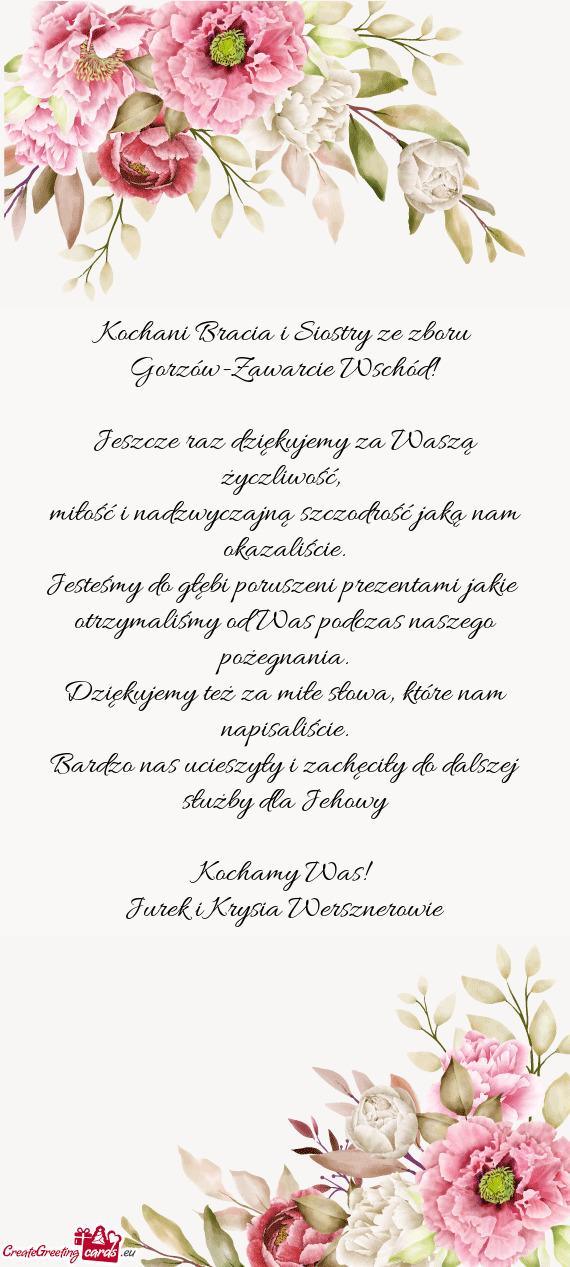 Kochani Bracia i Siostry ze zboru
Gorzów-Zawarcie Wschód!
Jeszcze raz dziękujemy za Waszą
życzliwość,
miłość i nadzwyczajną szczodrość jaką nam
okazaliście.
Jesteśmy do głębi poruszeni prezentami jakie
otrzymaliśmy od Was podczas naszego
pożegnania.
Dziękujemy też za miłe słowa, które nam
napisaliście.
Bardzo nas ucieszyły i zachęciły do dalszej
służby dla Jehowy
Kochamy Was!
Jurek i Krysia Wersznerowie
CreateGreeting cards .eu